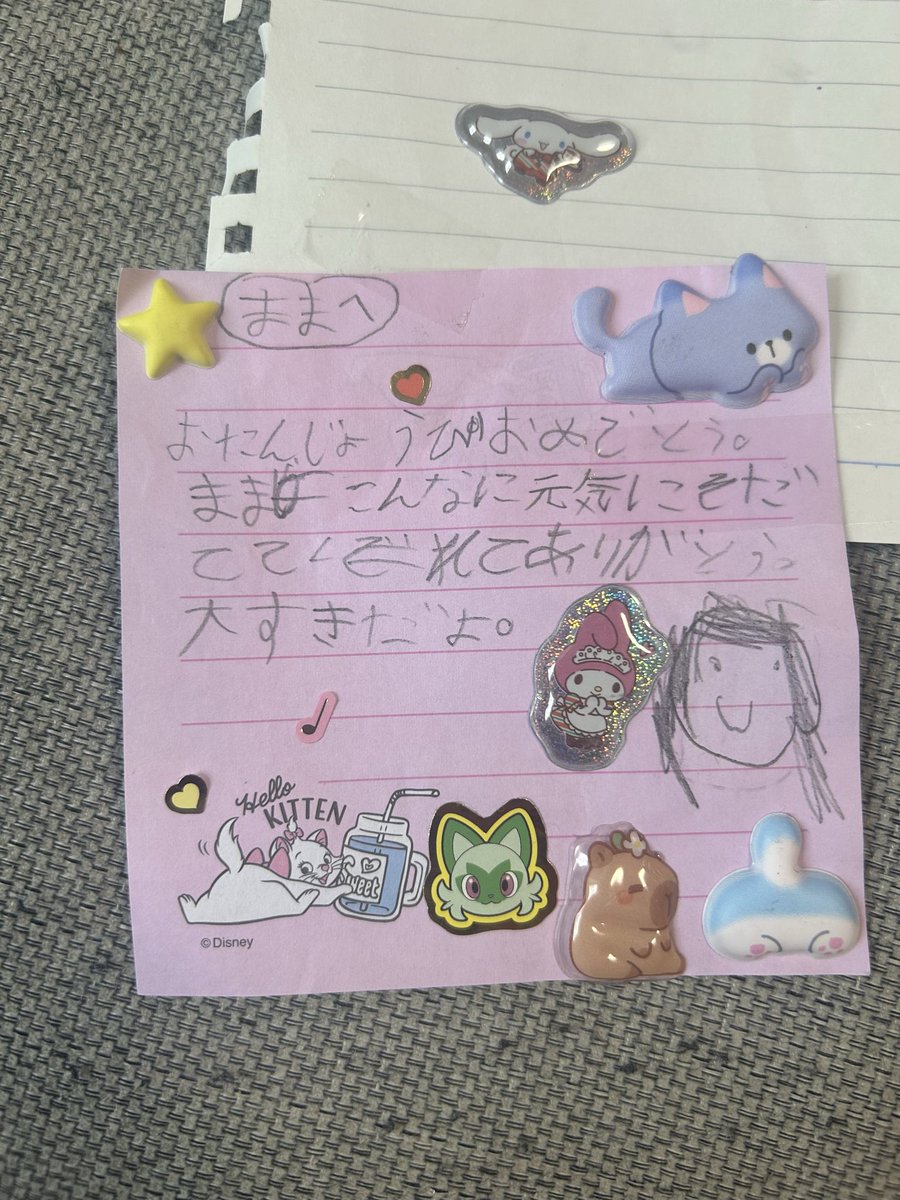 ままへ
おたんじょうびおめでとう。
まま こんなに元気にこそだ
てて くれてありがとう。
大すきだよ。
Hello
KITTEN
Sweet
©Disney